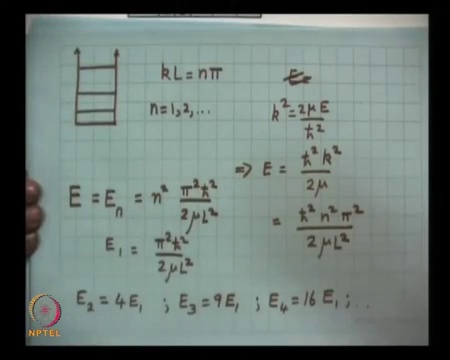 kL = nπ
n = 1, 2, ...
k² = 2μE / ħ²
⇒ E = ħ²k² / 2μ
= ħ² n² π² / 2μL²
E = Eₙ = n² π²ħ² / 2μL²
E₁ = π²ħ² / 2μL²
E₂ = 4E₁ ; E₃ = 9E₁ ; E₄ = 16 E₁ ; ..
NPTEL